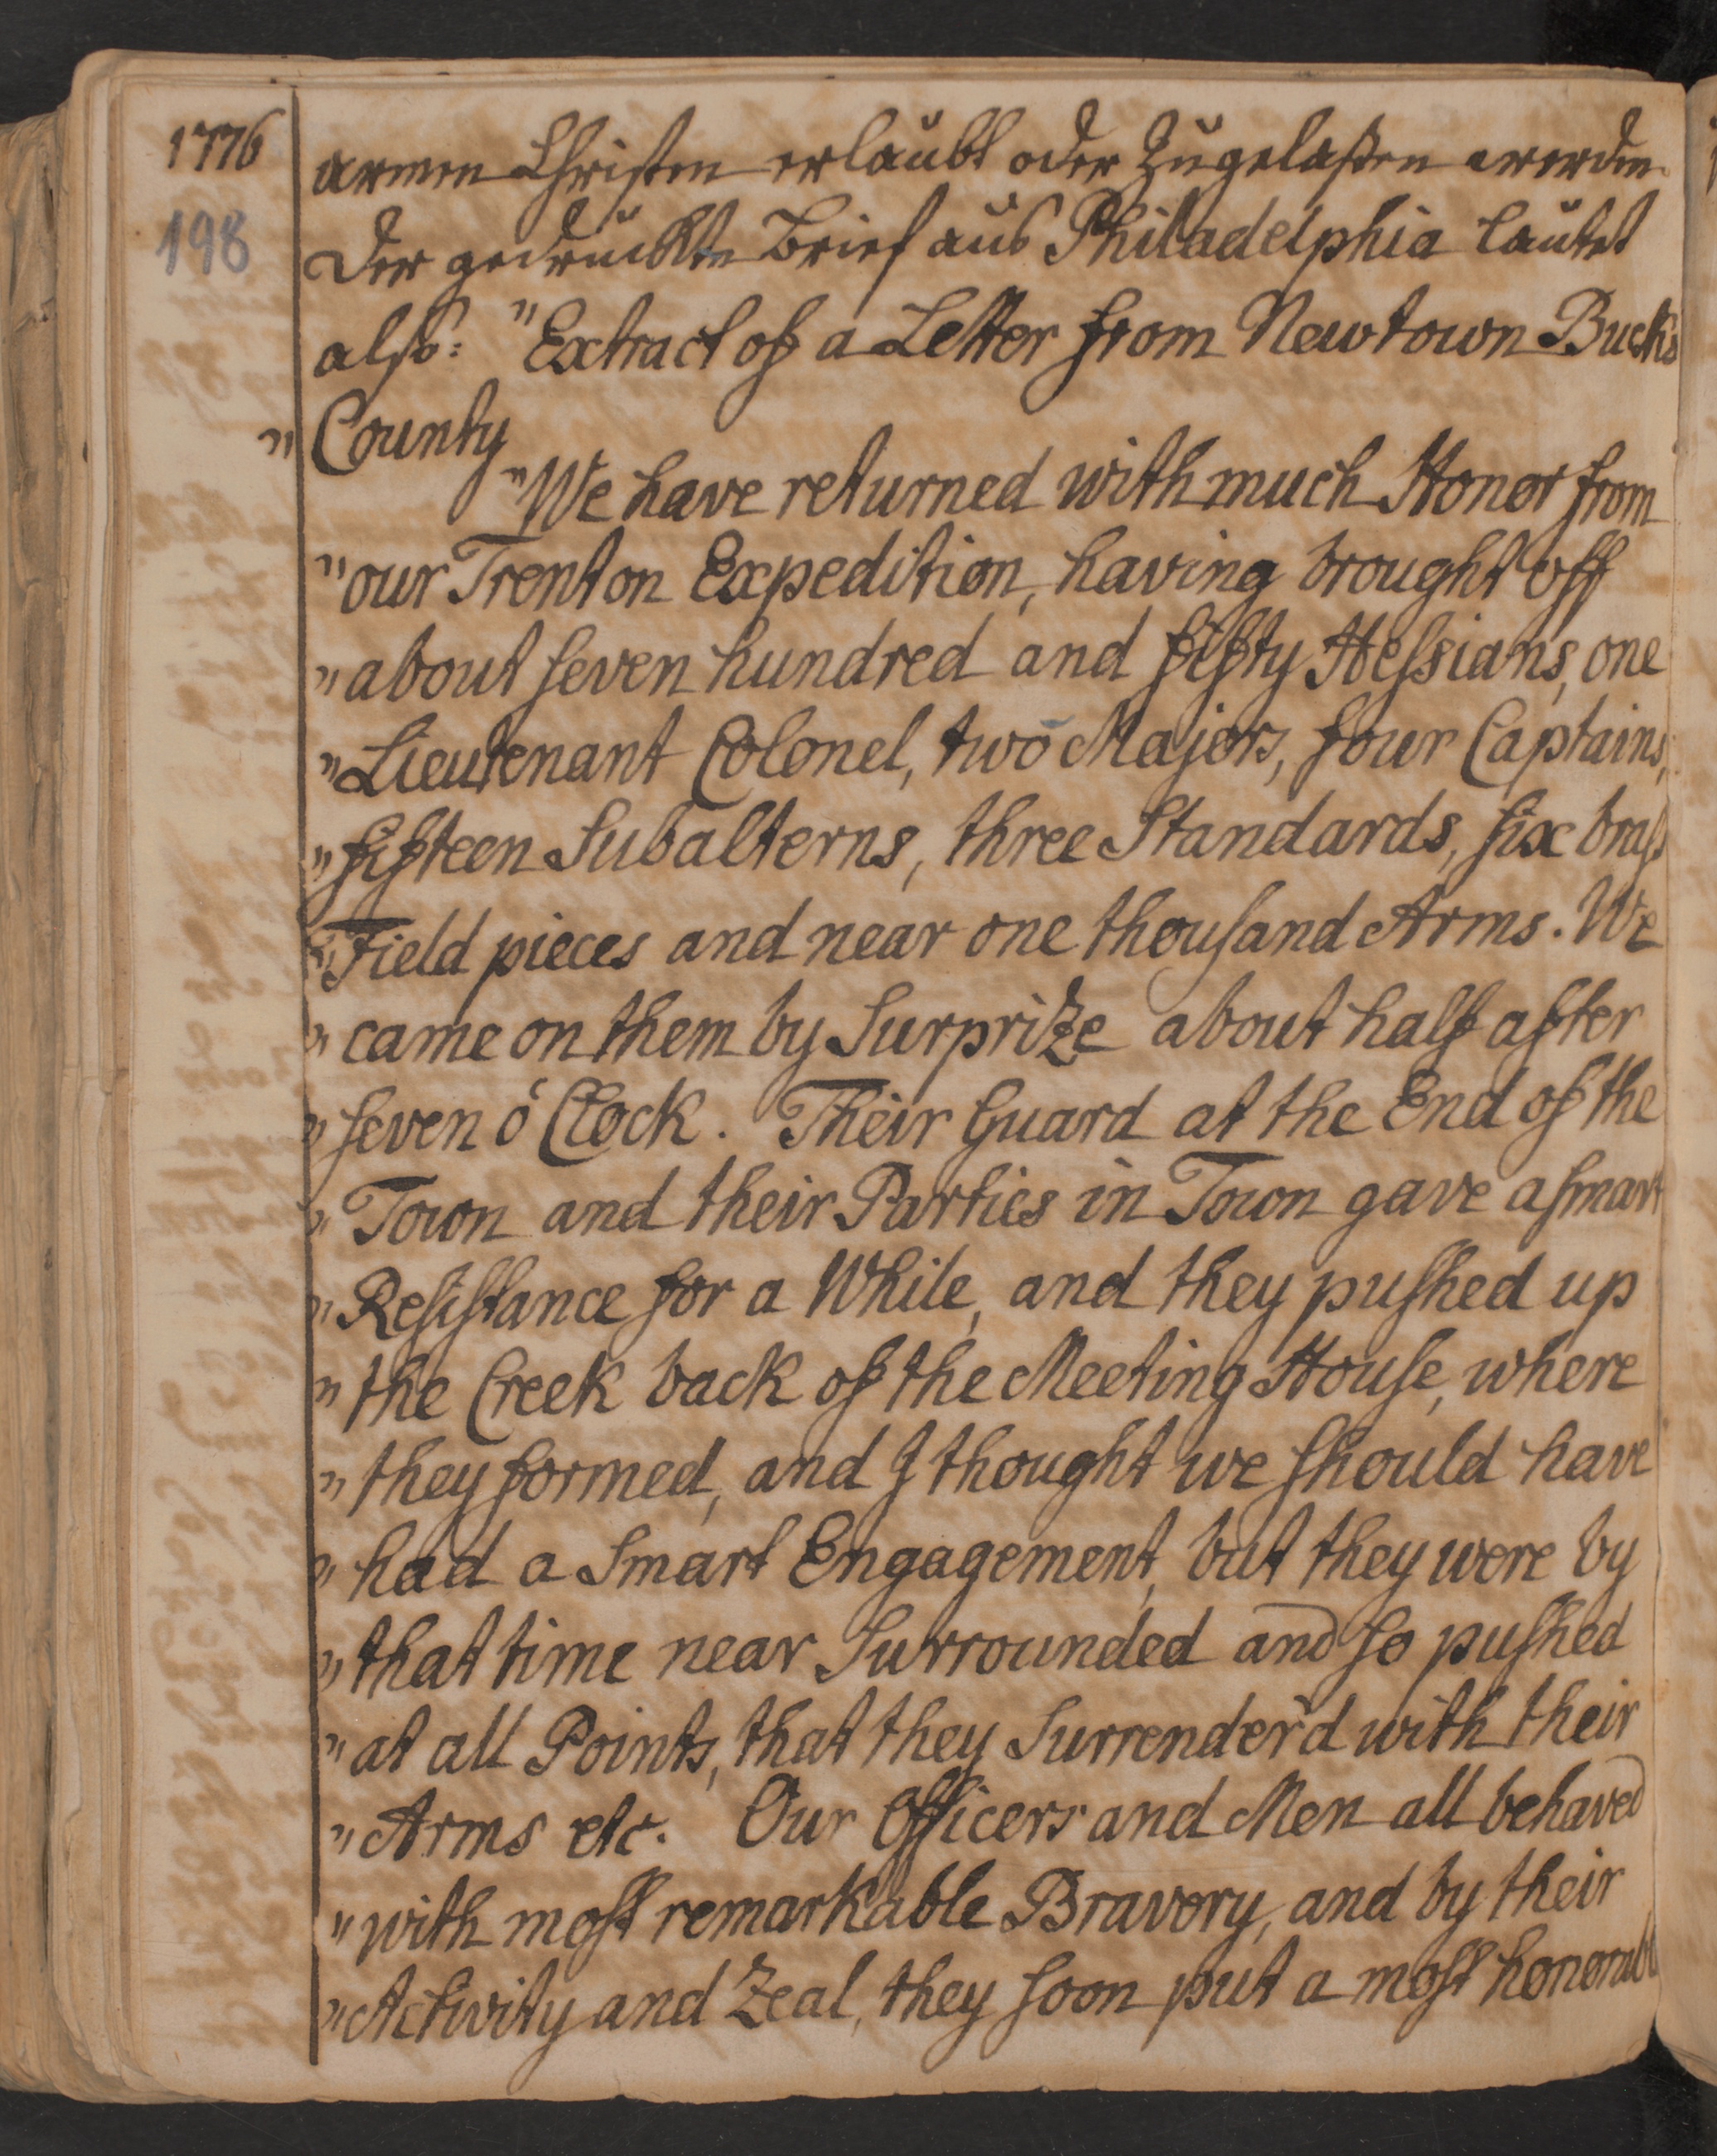 1776
198
armen Christen erlaubt oder zugelaßen werden.
Der gedruckte Brief aus Philadelphia lautet
also: "Extract of a Letter from Newtown Bucks
" County
"We have returned with much Honor from
" our Trenton Expedition, having brought off
" about ſeven hundred and fifty Heſsians, one
" Lieutenant Colonel, two Majors, four Captains,
" fifteen Subalterns, three Standards, ſix braſs
" Field pieces and near one thouſand Arms. We
" came on them by Surprize about half after
" ſeven o'Clock. Their Guard at the End of the
" Town and their Parties in Town gave a ſmart
" Reſiſtance for a While, and they puſhed up
" the Creek back of the Meeting Houſe, where
" they formed, and I thought we ſhould have
" had a Smart Engagement, but they were by
" that time near Surrounded and ſo puſhed
" at all Points, that they Surrender'd with their
" Arms etc. Our Officers and Men all behaved
" with moſt remarkable Bravery, and by their
" Activity and Zeal, they ſoon put a moſt honorable